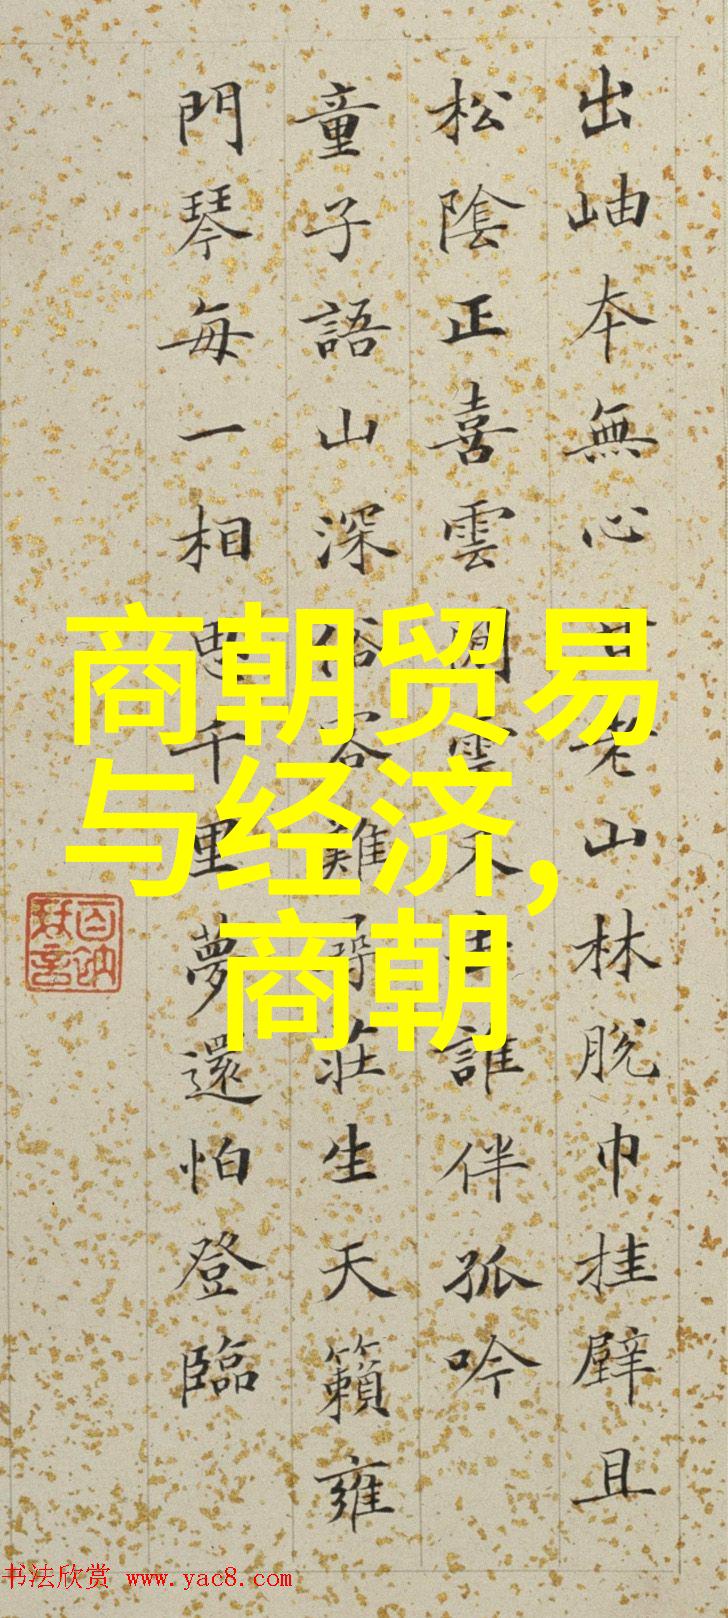 出岫本無心老山林脫巾挂壁且
松陰正喜雲雲誰伴孤吟
童子語山深俗客難尋莊生天籟雍
門琴每一相思千里夢還怕登臨
商朝贸易
与经济,
商朝
书法欣赏 www.yac8.com